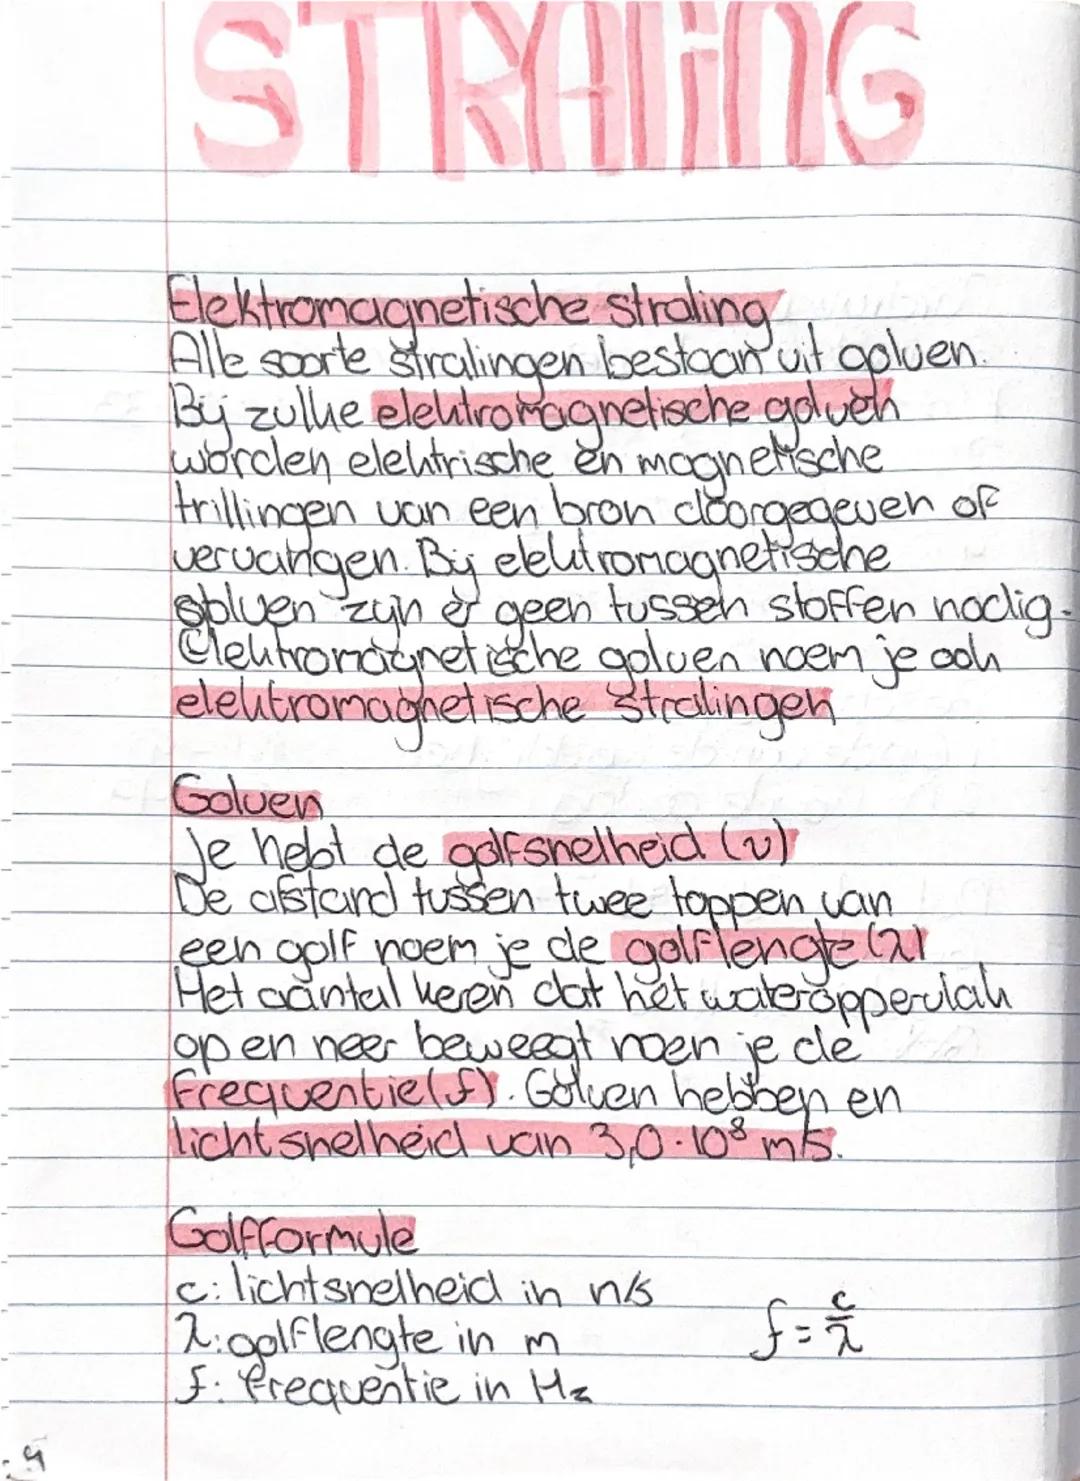 STRALING
Elektromagnetische straling
Alle soorte stralingen bestaan uit golven.
Bij zulke elektromagnetische golven
worden elektrische en magnetische
trillingen van een bron doorgegeven of
vervangen. Bij elektromagnetische
golven zijn er geen tussen stoffen nodig.
Elektromagnetische golven noem je ook
elektromagnetische stralingen
Golven
Je hebt de golfsnelheid (v)
De afstand tussen twee toppen van
een golf noem je de golflengte (λ)
Het aantal keren dat het wateroppervlak
op en neer beweegt noen je de
frequentie (f). Golven hebben en
lichtsnelheid van 3,0·10⁸ m/s.
Golfformule
c: lichtsnelheid in m/s
λ: golflengte in m
f = c/λ
f: frequentie in Hz